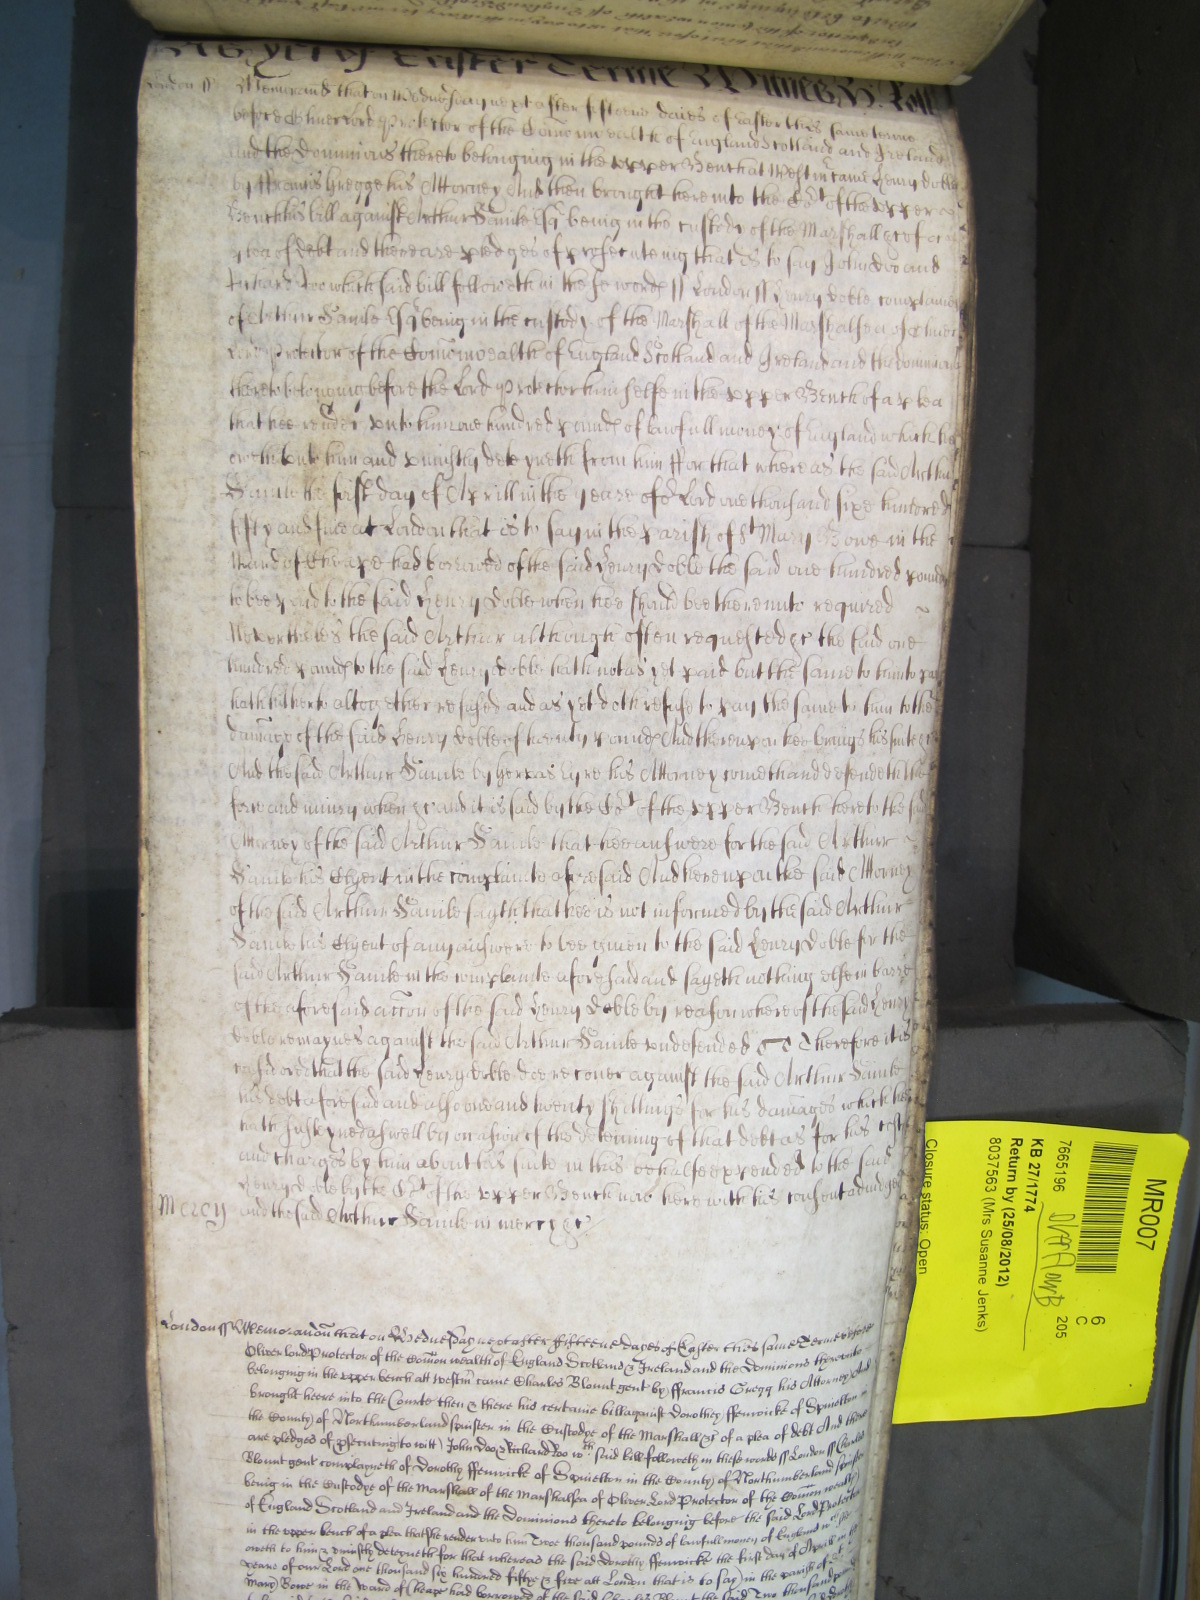 yet of Easter Terme Wittnes R: Roll
London ss Memorand that on Wednesday next after fifteene daies of Easter this same terme
before Oliver Lord Protector of the Comonwealth of England Scotland and Ireland
and the Dominions thereto belonging in the upper Bench at Westm came Henry Doble
by ffrancis Gregge his Attorney And then brought here into the Cort of the upper
Bench his bill against Arthur Samle Esq being in the custody of the Marshall &c of a
plea of debt and there are pledges of prosecuteing that is to say John Doo and
Richard Roo which said bill followeth in these words ss London ss Henry Doble complaines
of Arthur Samle Esq being in the custody of the Marshall of the Marshalsea of Oliver
Lord Protector of the Comonwealth of England Scotland and Ireland and the Dominions
thereto belonging before the Lord Protector himselfe in the upper Bench of a plea
that hee render unto him one hundred pounds of lawfull money of England which hee
oweth unto him and uniustly deteyneth from him ffor that whereas the said Arthur
Samle the first day of Aprill in the yeare of or Lord one thousand sixe hundred
fifty and five at London that is to say in the Parish of St Mary Bowe in the
Ward of Cheape had borrowed of the said Henry Doble the said one hundred pounds
to bee paid to the said Henry Doble when hee should bee thereunto required
Neverthelesse the said Arthur although often requested &c the said one
hundred pounds to the said Henry Doble hath not as yet paid but the same to him to pay
hath hitherto altogether refused and as yet doth refuse to pay the same to him to the
damage of the said Henry Doble of twenty pounds And thereupon hee brings his suite &c
And the said Arthur Samle by Gervas Eyre his Attorney cometh and defendeth the
force and iniury when &c and it is said by the Cort of the upper Bench here to the said
Attorney of the said Arthur Samle that hee answere for the said Arthur
Samle his Clyent in the complainte aforesaid And hereupon the said Attorney
of the said Arthur Samle sayth that hee is not informed by the said Arthur
Samle his Clyent of any answere to bee given to the said Henry Doble for the
said Arthur Samle in the complainte aforesaid and sayeth nothing else in barre
of the aforesaid accon of the said Henry Doble by reason whereof the said Henry
Doble remaynes against the said Arthur Samle undefended &c Therefore it is
considered that the said Henry Doble doe recover against the said Arthur Samle
his debt aforesaid and also one and twenty shillings for his damages which hee
hath susteyned aswell by occasion of the deteining of that debt as for his costs
and charges by him about his suite in this behalfe expended to the said
Henry Doble by the Cort of the upper Bench now here with his consent adiudged
Mercy and the said Arthur Samle in mercy &c
London ss Memorandu that on Wednesday next after fifteene dayes of Easter this same Terme before
Oliver Lord Protector of the Comon wealth of England Scotland & Ireland and the Dominions thereunto
belonging in the upper bench att Westm came Charles Blount gent by ffrancis Gregg his Attorney And
brought heere into the Courte then & there his certaine bill against Dorothey ffenwicke of Spinelton in
the County of Northumberland spinster in the Custodye of the Marshall &c of a plea of debt And there
are pledges of psecuting (to witt) John Doo & Richard Roo wch said bill followeth in these words ss London ss Charles
Blount gent complayneth of Dorothy ffenwicke of Spinelton in the County of Northumberland spinster
being in the Custodye of the Marshall of the Marshalsea of Oliver Lord Protector of the Comonwealth
of England Scotland and Ireland and the Dominions thereto belonging before the said Lord Protector
in the upper bench of a plea that she render unto him Twoe thousand pounds of lawfull money of England wch she
oweth to him & uniustly deteyneth for that whereas the said Dorothy ffenwicke the first day of Aprill in the
yeare of our Lord one thousand six hundred fiftye & five att London that is to say in the parish of St
Mary Bowe in the Ward of Cheape had borrowed of the said Charles Blount the said Two thousand pounds
MR007
6
C
205
7665196
KB 27/1774
Return by (25/08/2012)
8037563 (Mrs Susanne Jenks)
Closure status: Open